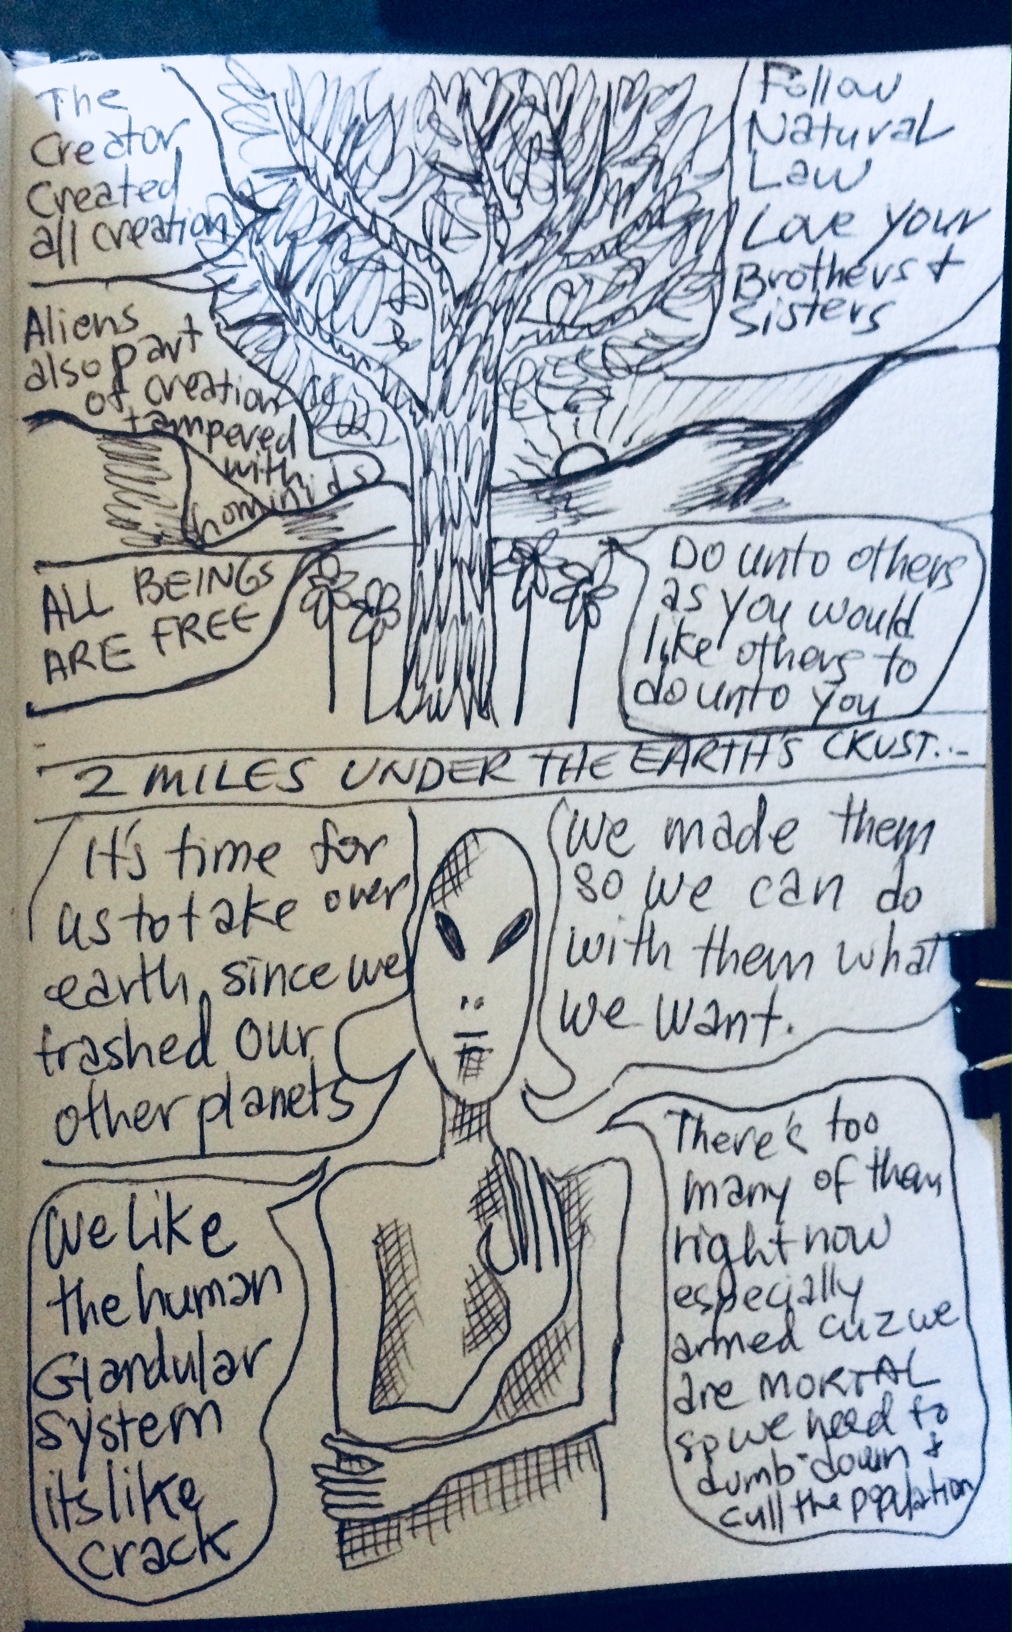 The
Creator
Created
all creation
Follow
Natural
Law
Love your
Brothers +
Sisters
Aliens
also part
of creation
tampered
with
hominids
ALL BEINGS
ARE FREE
Do unto others
as you would
like others to
do unto you
2 MILES UNDER THE EARTH'S CRUST...
It's time for
us to take over
earth, since we
trashed our
other planets
We made them
so we can do
with them what
we want.
We like
the human
Glandular
System
its like
crack
There's too
many of them
right now
especially
armed cuz we
are MORTAL
so we need to
dumb-down +
cull the population